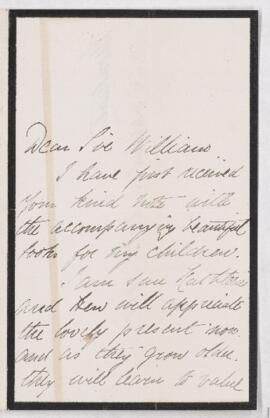 Dear Sir William
I have just received
your kind note with
the accompanying beautiful
books for my children.
I am sure Kathleen
and will appreciate
the lovely present now
and as they grow older
they will learn to value